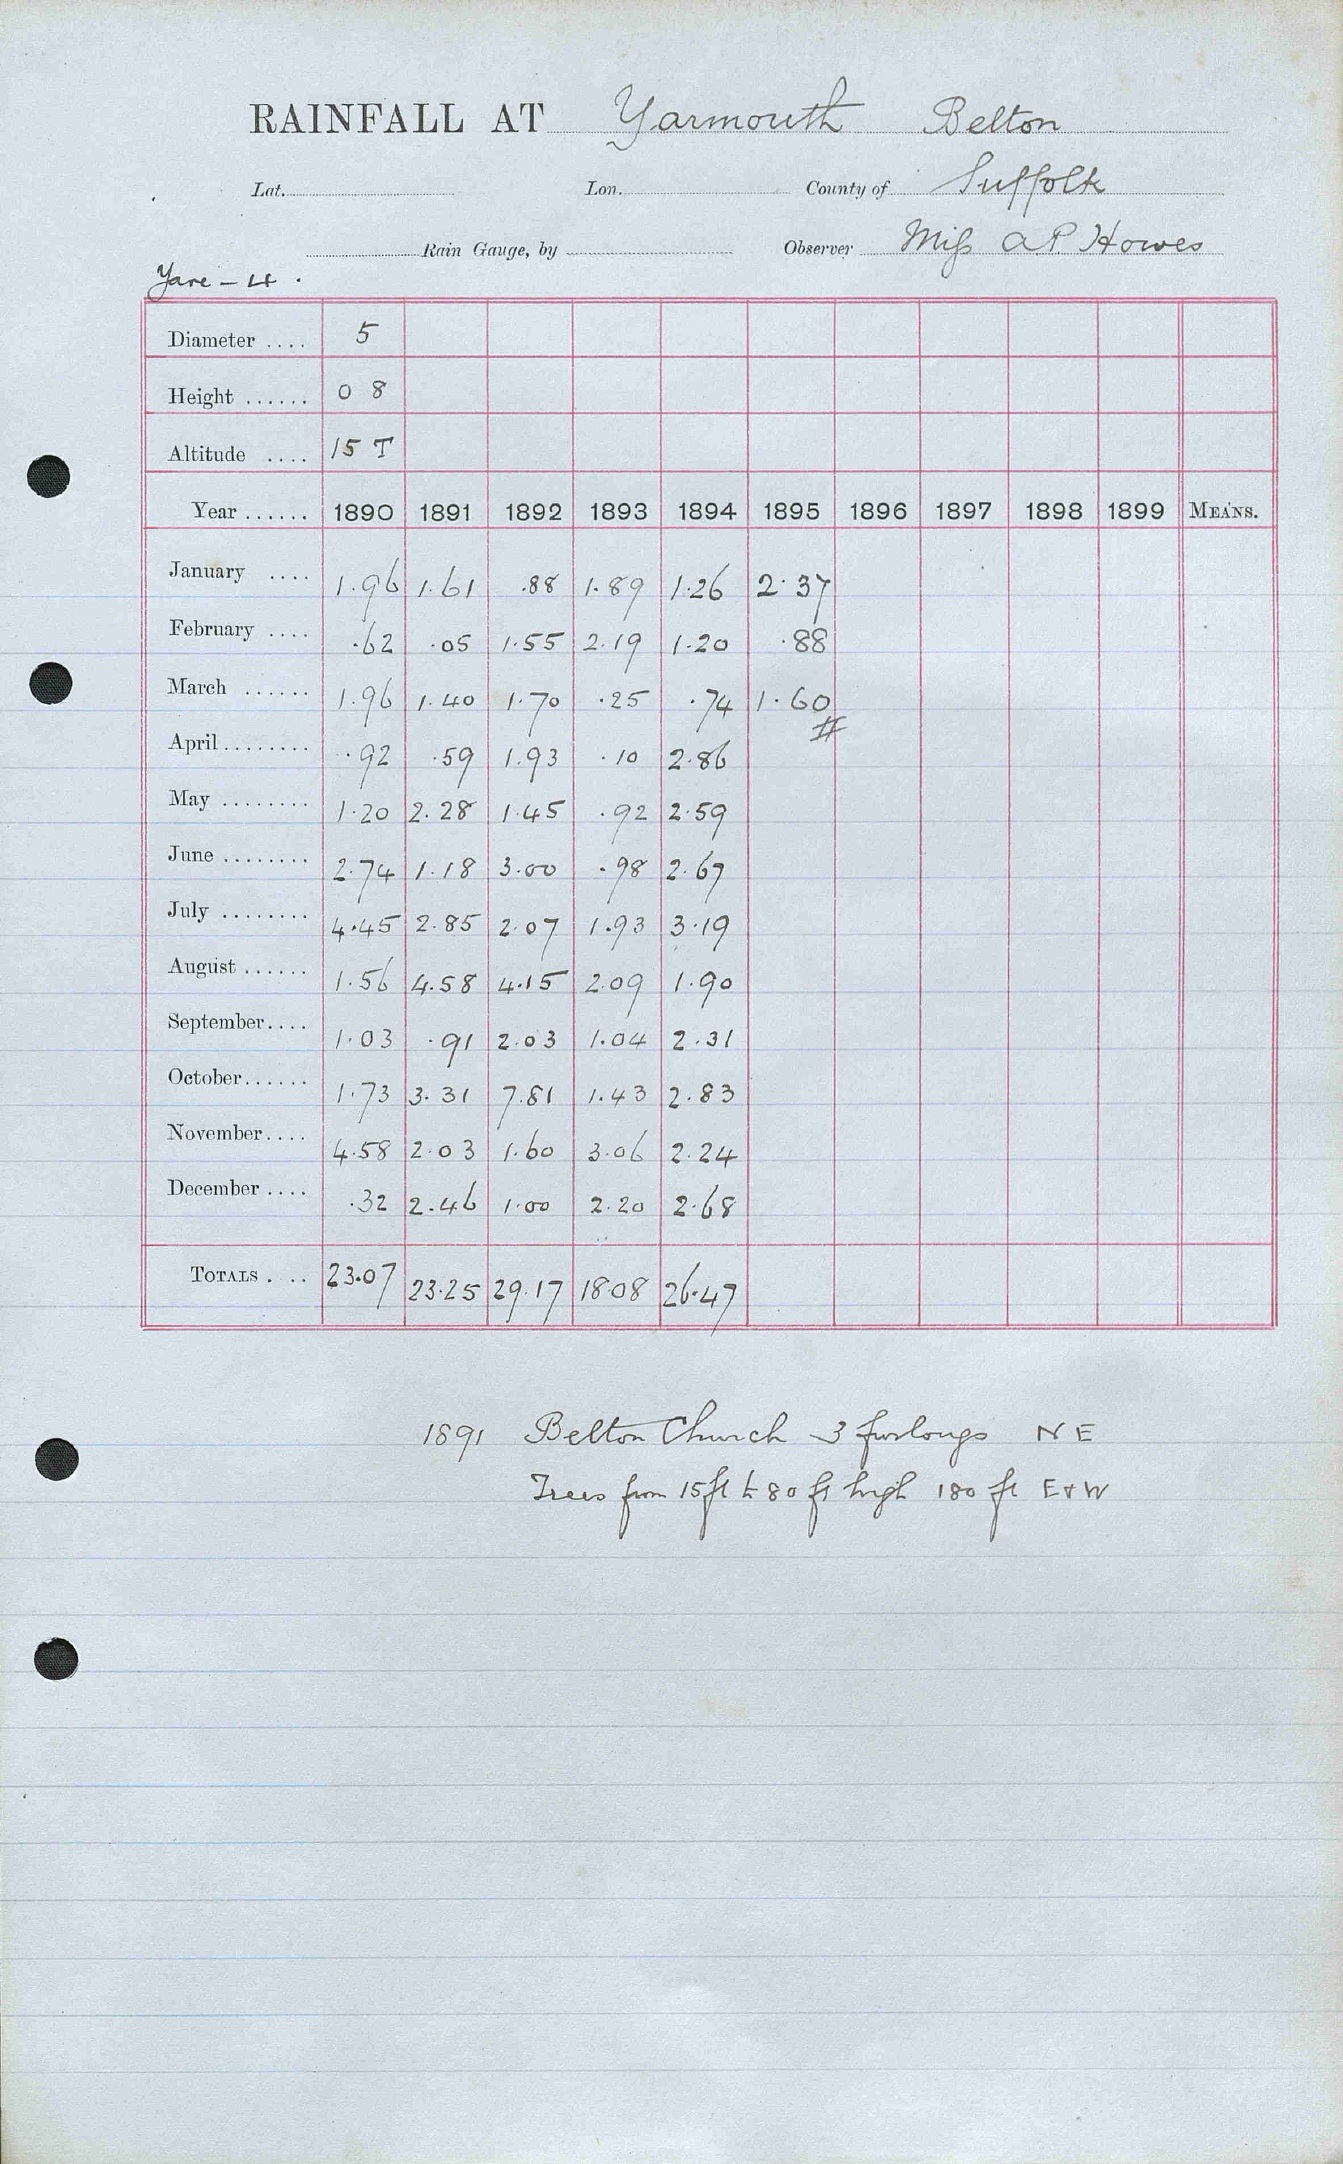 RAINFALL AT Yarmouth Belton
Lat. Lon. County of Suffolk
Rain Gauge, by Observer Miss A P Howes
Yare - 4.
Diameter .... 5
Height ...... 0 8
Altitude .... 15 T
Year ...... 1890 1891 1892 1893 1894 1895 1896 1897 1898 1899 MEANS.
January .... 1.96 1.61 .88 1.89 1.26 2.37
February .... .62 .05 1.55 2.19 1.20 .88
March ...... 1.96 1.40 1.70 .25 .74 1.60
April ........ .92 .59 1.93 .10 2.86
May ........ 1.20 2.28 1.45 .92 2.59
June ........ 2.74 1.18 3.00 .98 2.67
July ........ 4.45 2.85 2.07 1.93 3.19
August ...... 1.56 4.58 4.15 2.09 1.90
September.... 1.03 .91 2.03 1.04 2.31
October...... 1.73 3.31 7.81 1.43 2.83
November.... 4.58 2.03 1.60 3.06 2.24
December .... .32 2.46 1.00 2.20 2.68
TOTALS . ... 23.07 23.25 29.17 18.08 26.47
1891 Belton Church 3 furlongs N E
Trees from 15 ft to 80 ft high 180 ft E & W